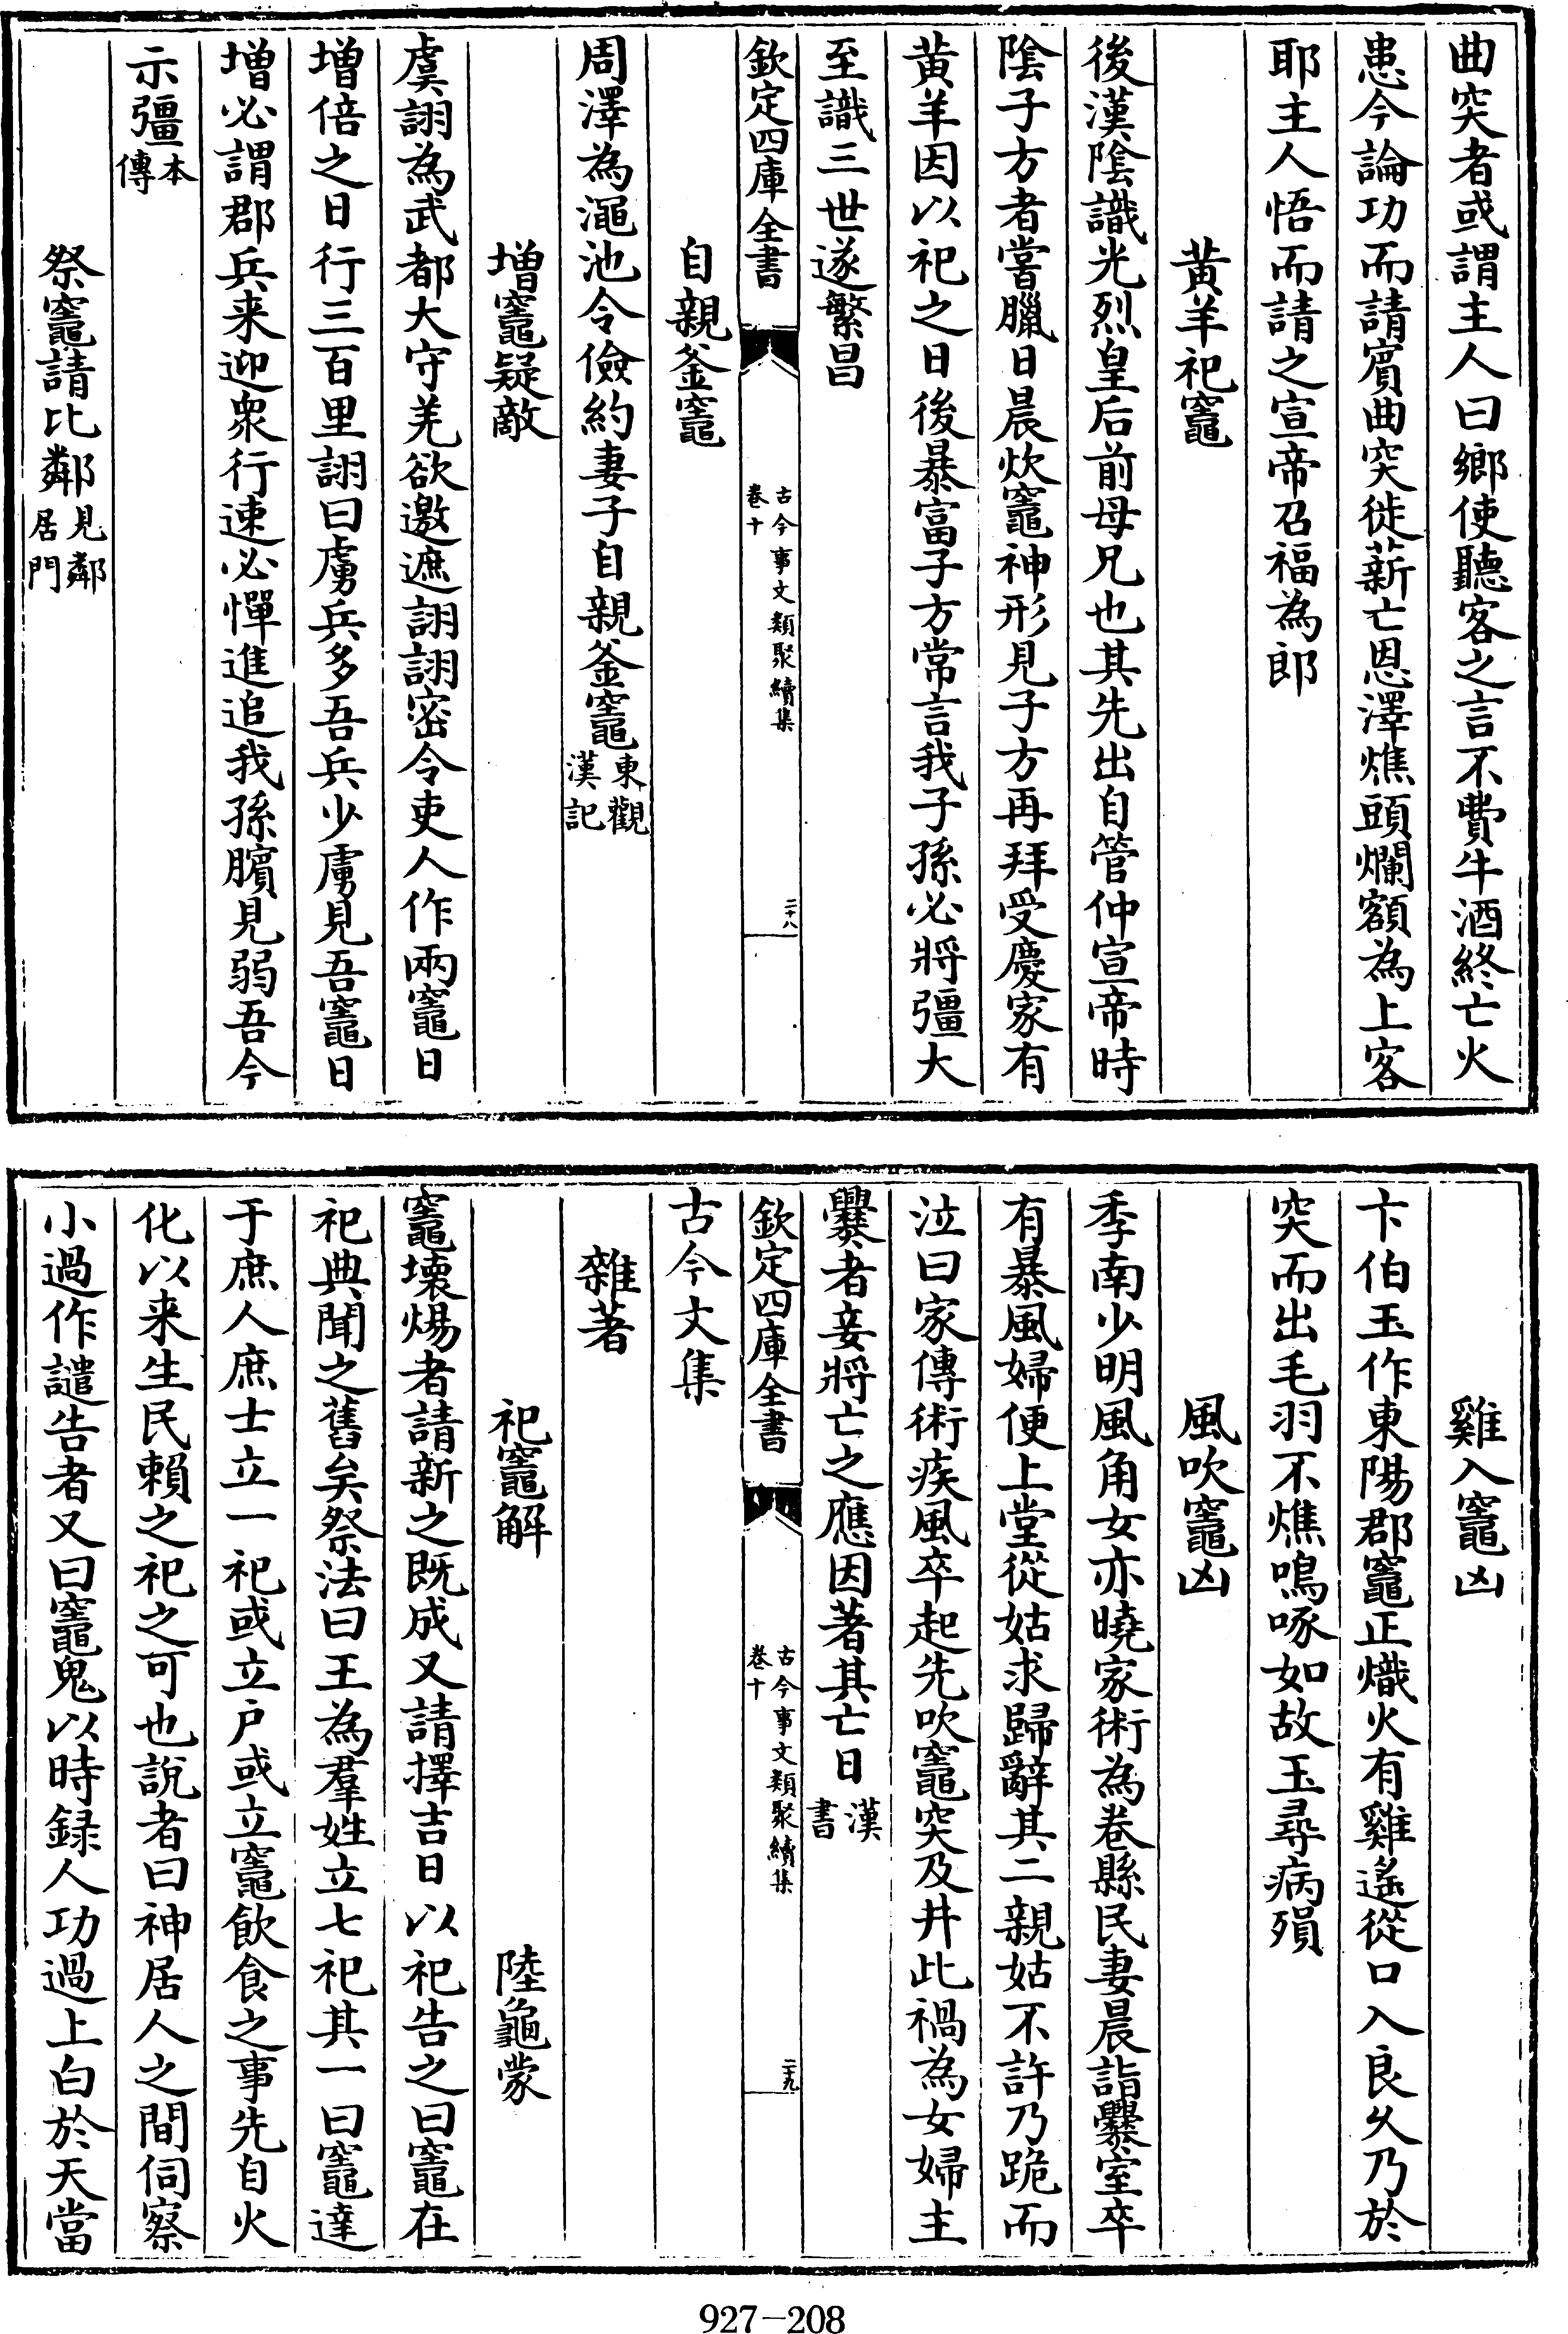 曲突者或謂主人曰鄉使聽客之言不費牛酒終亡火
患今論功而請賓曲突徙薪亡恩澤燋頭爛額為上客
耶主人悟而請之宣帝召福為郎
黄羊祀竈
後漢陰識光烈皇后前母兄也其先出自管仲宣帝時
陰子方者嘗臘日晨炊竈神形見子方再拜受慶家有
黄羊因以祀之日後暴富子方常言我子孫必將彊大
至識三世遂繁昌
欽定四庫全書
古今事文類聚續集
卷十
二十八
自親釜竈
周澤為澠池令儉約妻子自親釜竈東觀漢記
增竈疑敵
虞詡為武都大守羌欲邀遮詡詡密令吏人作兩竈日
增倍之日行三百里詡曰虜兵多吾兵少虜見吾竈日
增必謂郡兵来迎衆行速必憚進追我孫臏見弱吾今
示彊本傳
祭竈請比鄰見鄰居門
雞入竈凶
卞伯玉作東陽郡竈正熾火有雞遙從口入良久乃於
突而出毛羽不燋鳴啄如故玉尋病殞
風吹竈凶
季南少明風角女亦曉家術為卷縣民妻晨詣爨室卒
有暴風婦便上堂從姑求歸辭其二親姑不許乃跪而
泣曰家傳術疾風卒起先吹竈突及井此禍為女婦主
爨者妾將亡之應因著其亡日漢書
欽定四庫全書
古今事文類聚續集
卷十
二十九
古今文集
雜著
祀竈解 陸龜蒙
竈壞煬者請新之既成又請擇吉日以祀告之曰竈在
祀典聞之舊矣祭法曰王為羣姓立七祀其一曰竈達
于庶人庶士立一祀或立戶或立竈飲食之事先自火
化以来生民賴之祀之可也說者曰神居人之間伺察
小過作譴告者又曰竈鬼以時録人功過上白於天當
927-208